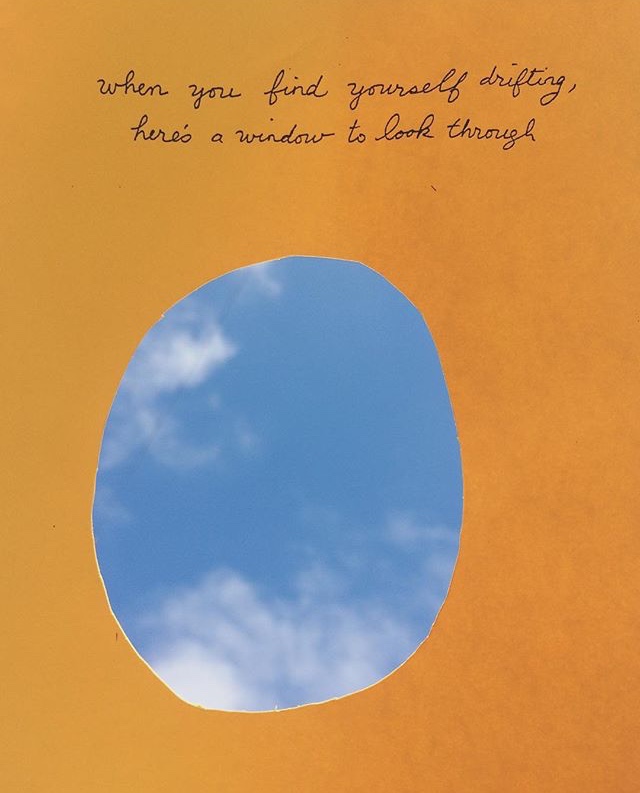 when you find yourself drifting,
here's a window to look through